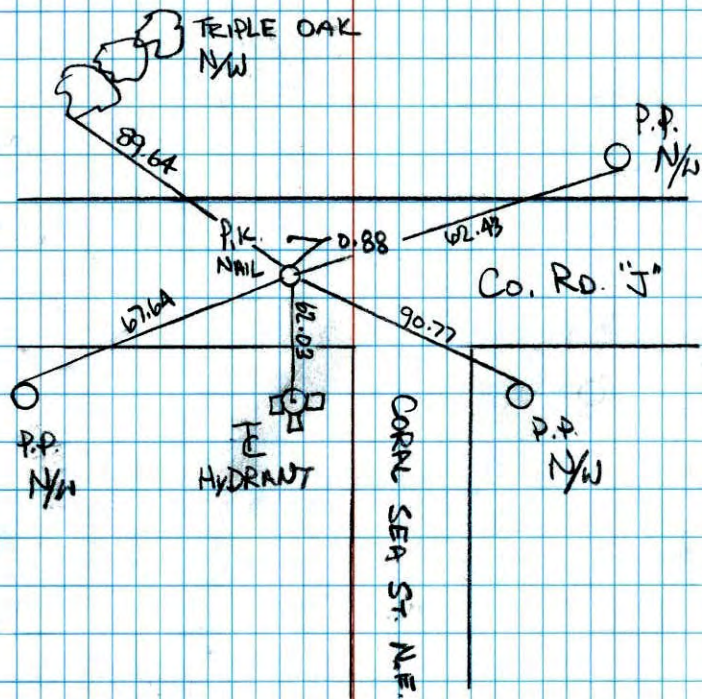 TRIPLE OAK
N/W
P.P.
N/W
89.64
P.K.
NAIL
0.88
62.43
Co. RD. "J"
67.64
62.03
90.77
P.P.
N/W
HYDRANT
P.P.
N/W
CORAL SEA ST. N.E.